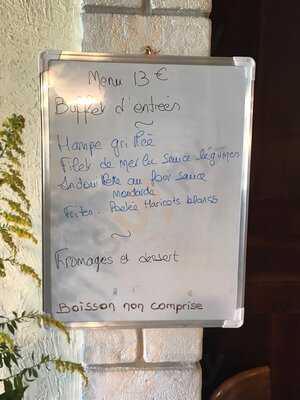 Menu 13 €
Buffet d'entrées
~
Hampe grillée
Filet de merlu sauce légumes
Andouillette au four sauce
moutarde
Frites. Poêlée Haricots blancs
~
Fromages et dessert
Boisson non comprise